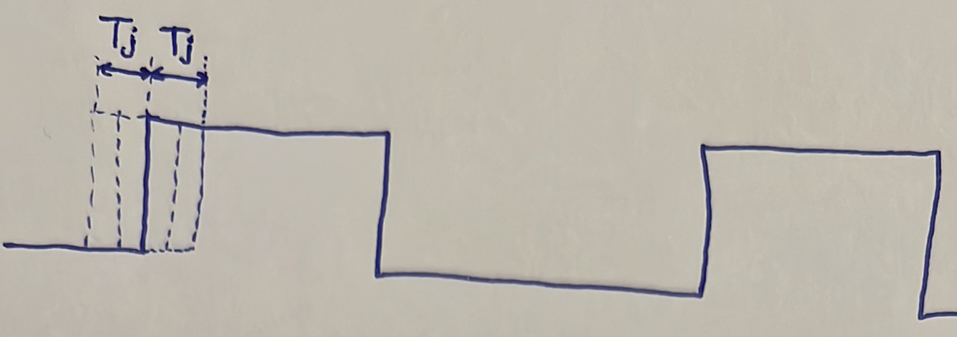 Tj Tj